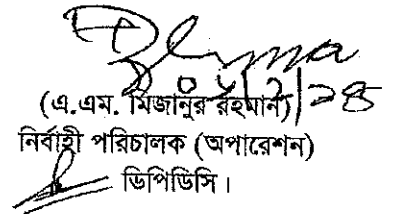 (এ.এম. মিজানুর রহমান)
নির্বাহী পরিচালক (অপারেশন)
ডিপিডিসি।